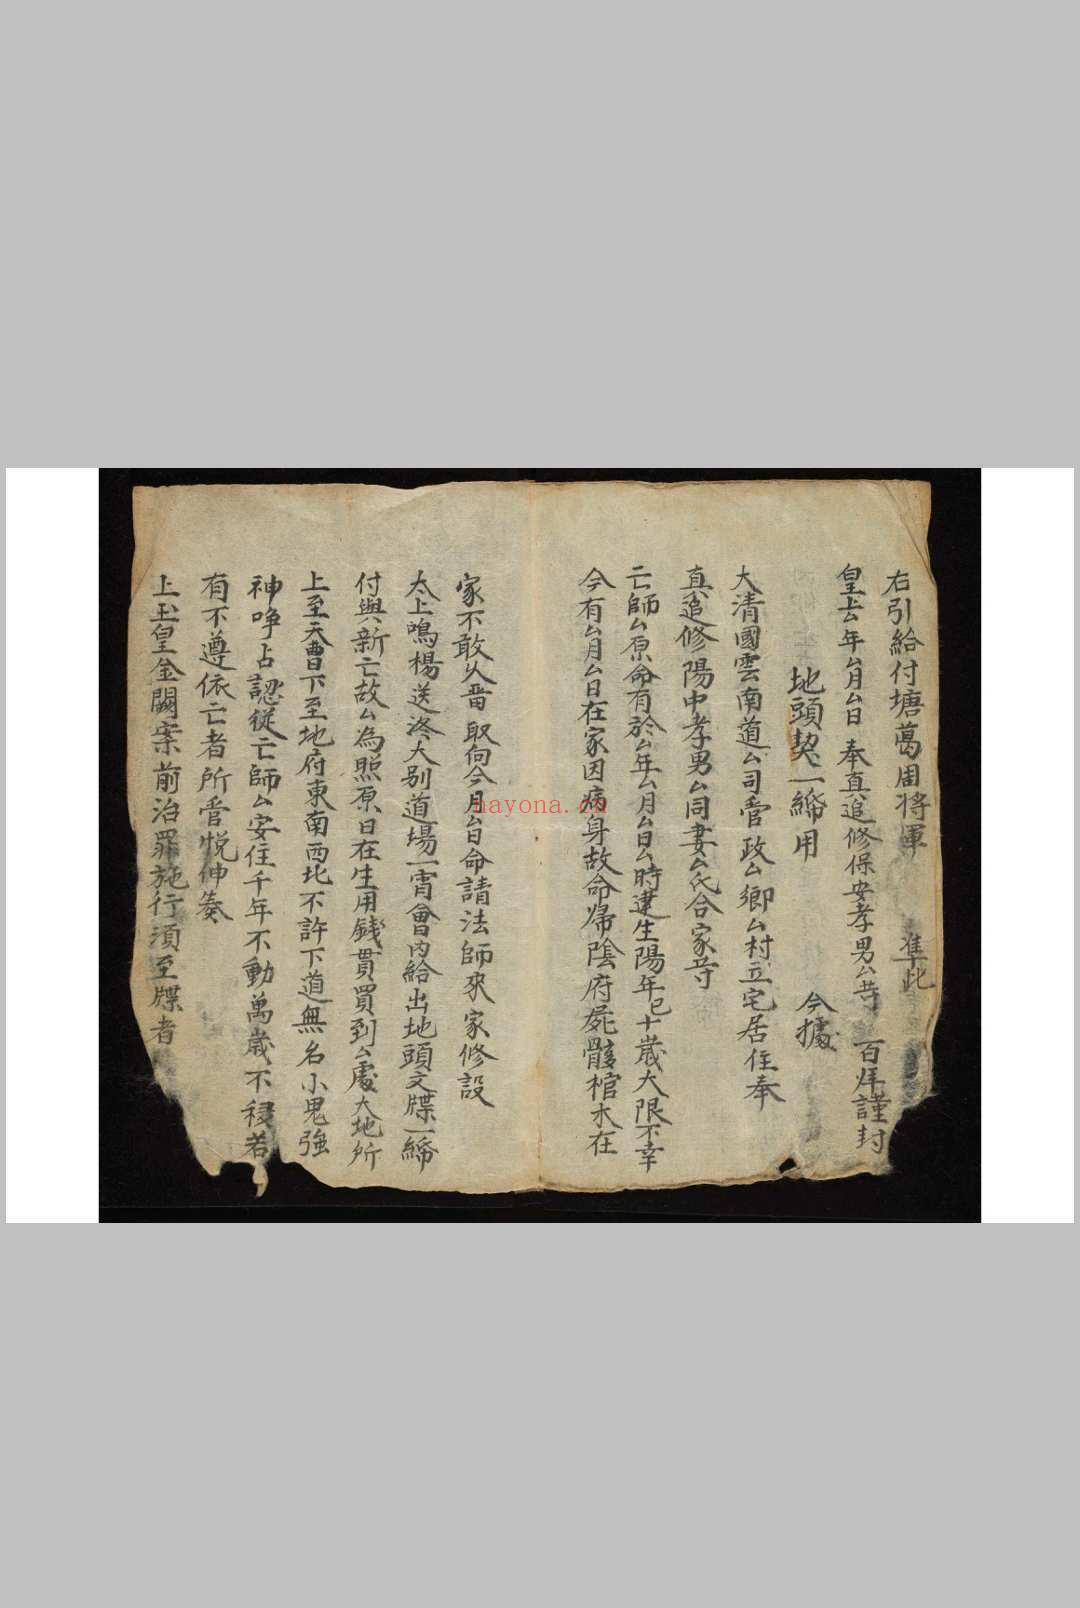 右引給付塘葛周将軍 准此
皇上厶年厶月厶日 奉真追修保安孝男厶等 百拜謹封
地頭契一締用 今據
大清國雲南道厶司管政厶鄉厶村立宅居住奉
真追修陽中孝男厶同妻厶氏合家等
亡師厶原命有於厶年厶月厶日厶時建生陽年已十歲大限不幸
今有厶月厶日在家因病身故命歸陰府屍骸棺木在
家不敢久畱 取向今月厶日命請法師來家修設
太上鳴楊送終大别道場一宵會内給出地頭文牒一締
付與新亡故厶為照原日在生用錢貫買到厶處大地所
上至天曹下至地府東南西北不許下道無名小鬼強
神啈占認從亡師厶安住千年不動萬歲不移若
有不遵依亡者所管悦伸奏
上玉皇金闕案前治罪施行須至牒者
nayona.cn